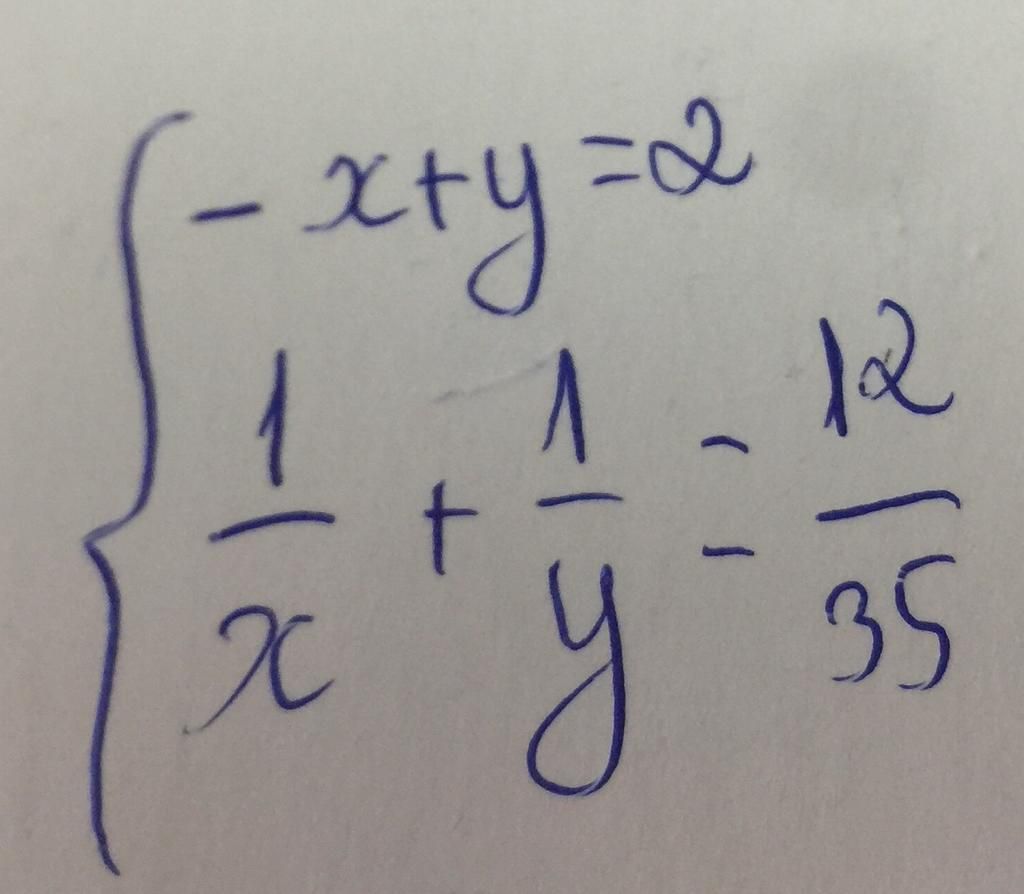 - x + y = 2
1/x + 1/y = 12/35